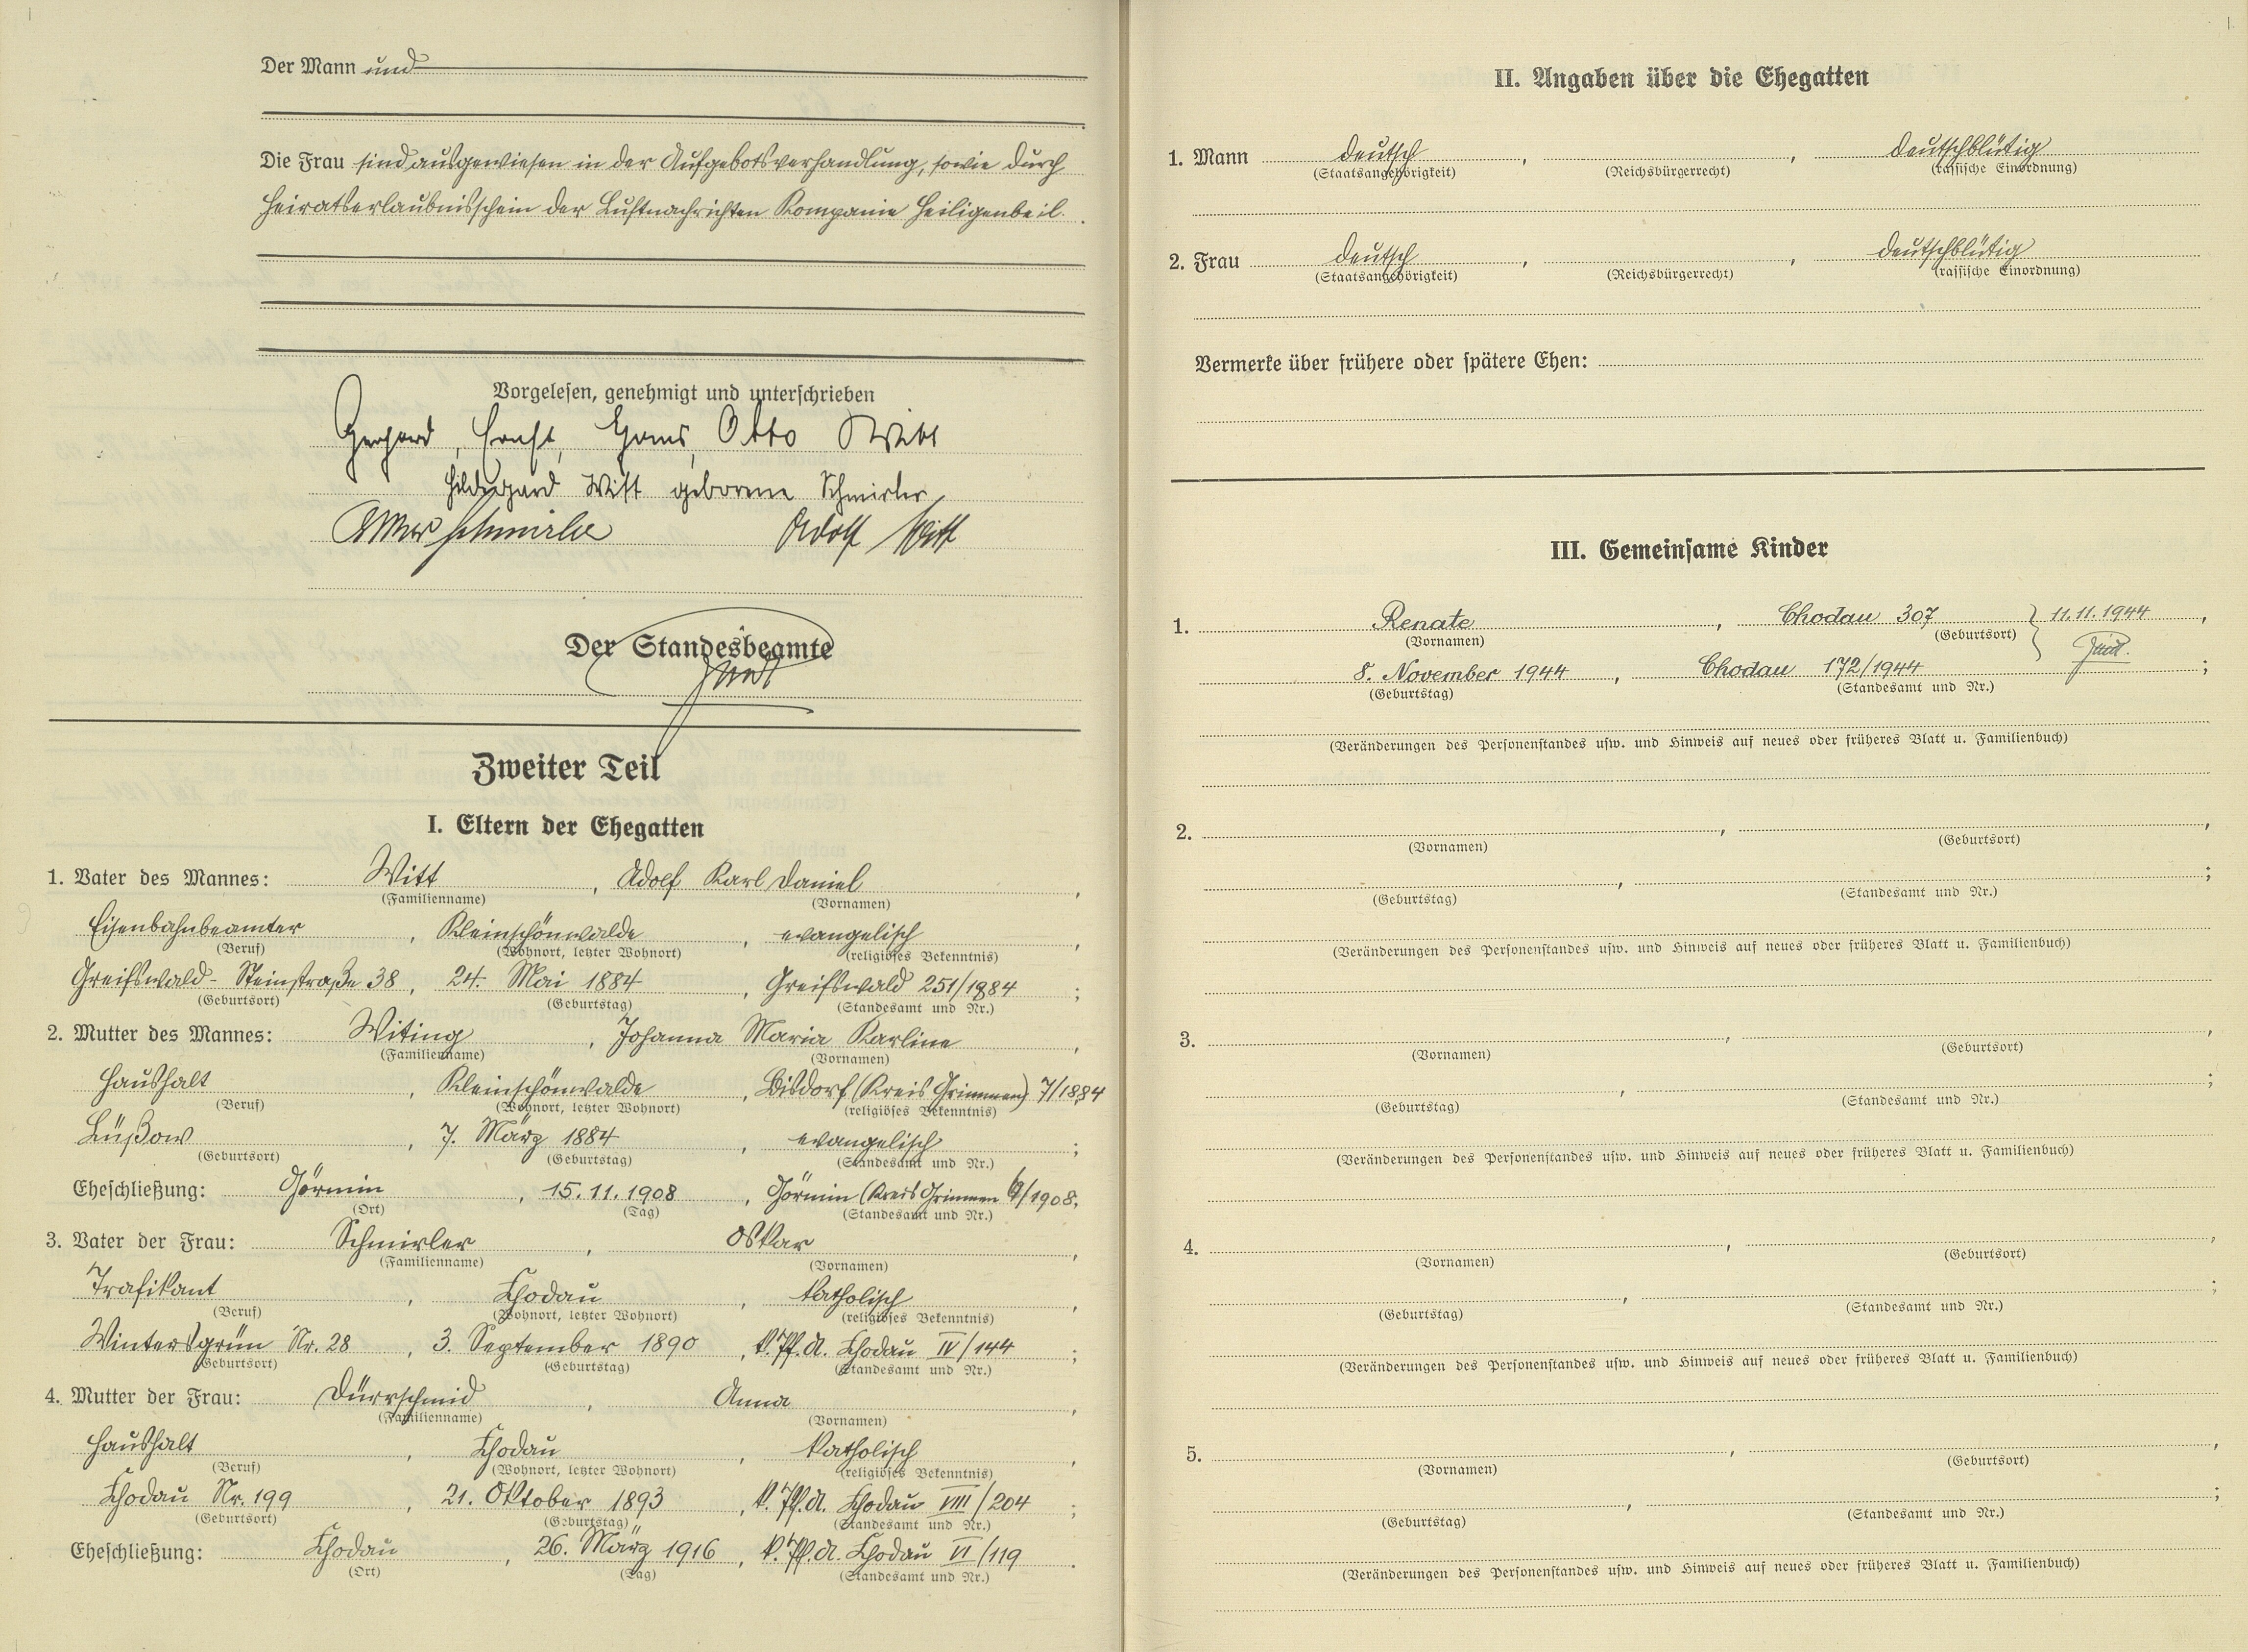 Der Mann und
Die Frau sind ausgewiesen in der Aufgebotsverhandlung, sowie durch
Heiratserlaubnisschein der Luftnachrichten Kompanie Heiligenbeil.
Vorgelesen, genehmigt und unterschrieben
Gerhard, Ernst, Hans, Otto Witt
Hildegard Witt geborene Schmirler
Schmirler Adolf Witt
Der Standesbeamte
Zweiter Teil
I. Eltern der Ehegatten
1. Vater des Mannes: Witt, Adolf Karl Daniel,
(Familienname) (Vornamen)
Eisenbahnbeamter, Kleinschönwalde, evangelisch,
(Beruf) (Wohnort, letzter Wohnort) (religiöses Bekenntnis)
Greifswald - Steinstraße 38, 24. Mai 1884, Greifswald 251/1884;
(Geburtsort) (Geburtstag) (Standesamt und Nr.)
2. Mutter des Mannes: Witing, Johanna Maria Karline,
(Familienname) (Vornamen)
Haushalt, Kleinschönwalde, Bisdorf (Kreis Grimmen) 7/1884
(Beruf) (Wohnort, letzter Wohnort) (religiöses Bekenntnis)
Lüßow, 7. März 1884, evangelisch;
(Geburtsort) (Geburtstag) (Standesamt und Nr.)
Eheschließung: Görmin, 15.11.1908, Görmin (Kreis Grimmen /1908;
(Ort) (Tag) (Standesamt und Nr.)
3. Vater der Frau: Schmirler, Oskar,
(Familienname) (Vornamen)
Trafikant, Chodau, katholisch,
(Beruf) (Wohnort, letzter Wohnort) (religiöses Bekenntnis)
Wintersgrün Nr. 28, 3. September 1890, k. Pf. A. Chodau IV/144;
(Geburtsort) (Geburtstag) (Standesamt und Nr.)
4. Mutter der Frau: Dürrschmid, Anna,
(Familienname) (Vornamen)
Haushalt, Chodau, katholisch,
(Beruf) (Wohnort, letzter Wohnort) (religiöses Bekenntnis)
Chodau Nr. 199, 21. Oktober 1893, k. Pf. A. Chodau VIII/204;
(Geburtsort) (Geburtstag) (Standesamt und Nr.)
Eheschließung: Chodau, 26. März 1916, k. Pf. A. Chodau VI/119.
(Ort) (Tag) (Standesamt und Nr.)
II. Angaben über die Ehegatten
1. Mann deutsch, , deutschblütig
(Staatsangehörigkeit) (Reichsbürgerrecht) (rassische Einordnung)
2. Frau deutsch, , deutschblütig
(Staatsangehörigkeit) (Reichsbürgerrecht) (rassische Einordnung)
Vermerke über frühere oder spätere Ehen:
III. Gemeinsame Kinder
1. Renate, Chodau 307 } 11.11.1944,
(Vornamen) (Geburtsort)
8. November 1944, Chodau 172/1944;
(Geburtstag) (Standesamt und Nr.)
(Veränderungen des Personenstandes usw. und Hinweis auf neues oder früheres Blatt u. Familienbuch)
2. , ,
(Vornamen) (Geburtsort)
, ;
(Geburtstag) (Standesamt und Nr.)
(Veränderungen des Personenstandes usw. und Hinweis auf neues oder früheres Blatt u. Familienbuch)
3. , ,
(Vornamen) (Geburtsort)
, ;
(Geburtstag) (Standesamt und Nr.)
(Veränderungen des Personenstandes usw. und Hinweis auf neues oder früheres Blatt u. Familienbuch)
4. , ,
(Vornamen) (Geburtsort)
, ;
(Geburtstag) (Standesamt und Nr.)
(Veränderungen des Personenstandes usw. und Hinweis auf neues oder früheres Blatt u. Familienbuch)
5. , ,
(Vornamen) (Geburtsort)
, ;
(Geburtstag) (Standesamt und Nr.)
(Veränderungen des Personenstandes usw. und Hinweis auf neues oder früheres Blatt u. Familienbuch)